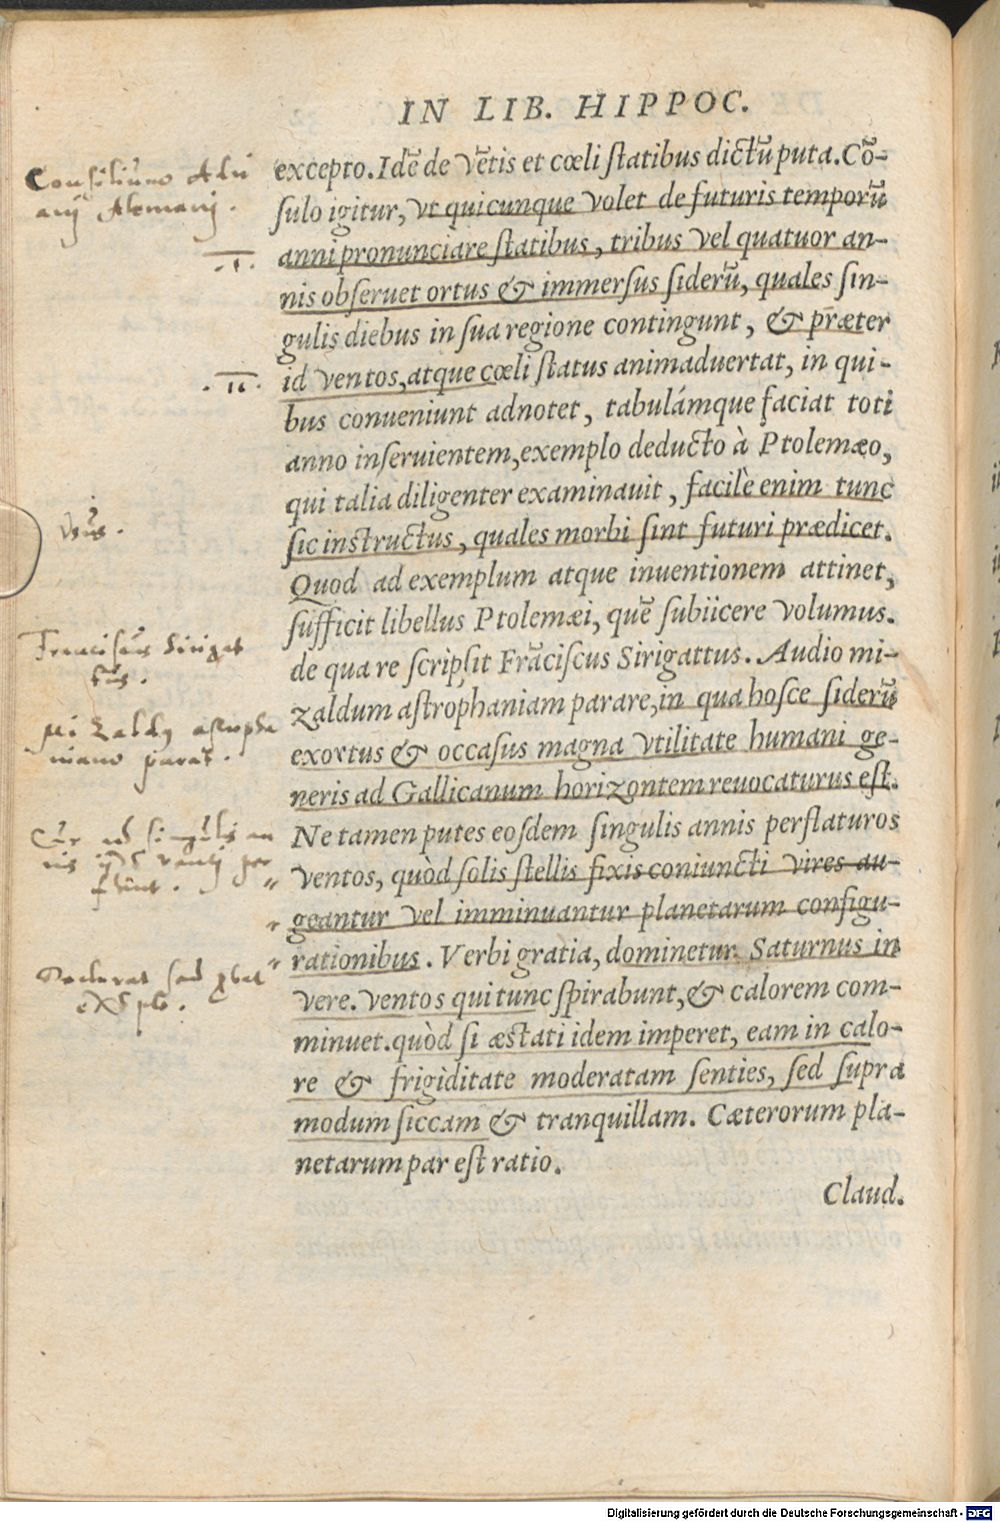 IN LIB. HIPPOC.
excepto. Idē de vētis et cœli ſtatibus dictū puta. Cō-
ſulo igitur, vt quicunque volet de futuris temporū
anni pronunciare ſtatibus, tribus vel quatuor an-
nis obſeruet ortus & immerſus ſiderū, quales ſin-
gulis diebus in ſua regione contingunt, & præter
id ventos, atque cœli ſtatus animaduertat, in qui-
bus conueniunt adnotet, tabulámque faciat toti
anno inſeruientem, exemplo deducto à Ptolemæo,
qui talia diligenter examinauit, facilè enim tunc
ſic inſtructus, quales morbi ſint futuri prædicet.
Quod ad exemplum atque inuentionem attinet,
ſufficit libellus Ptolemæi, quē ſubiicere volumus.
de qua re ſcripſit Frāciſcus Sirigattus. Audio mi-
zaldum aſtrophaniam parare, in qua hoſce ſiderū
exortus & occaſus magna vtilitate humani ge-
neris ad Gallicanum horizontem reuocaturus eſt.
Ne tamen putes eoſdem ſingulis annis perſtaturos
ventos, quòd ſolis ſtellis fixis coniuncti vires au-
geantur vel imminuantur planetarum configu-
rationibus. Verbi gratia, dominetur Saturnus in
vere. ventos qui tunc ſpirabunt, & calorem com-
minuet. quòd ſi æſtati idem imperet, eam in calo-
re & frigiditate moderatam ſenties, ſed ſupra
modum ſiccam & tranquillam. Cæterorum pla-
netarum par eſt ratio.
Claud.
Consilium
Alemanij.
.I.
.II.
vsus.
Franciscus Sirigat
tus.
Mizaldus astropha
niam parat.
Cur nō singulis an
nis
exēplo.
Digitalisierung gefördert durch die Deutsche Forschungsgemeinschaft - DFG